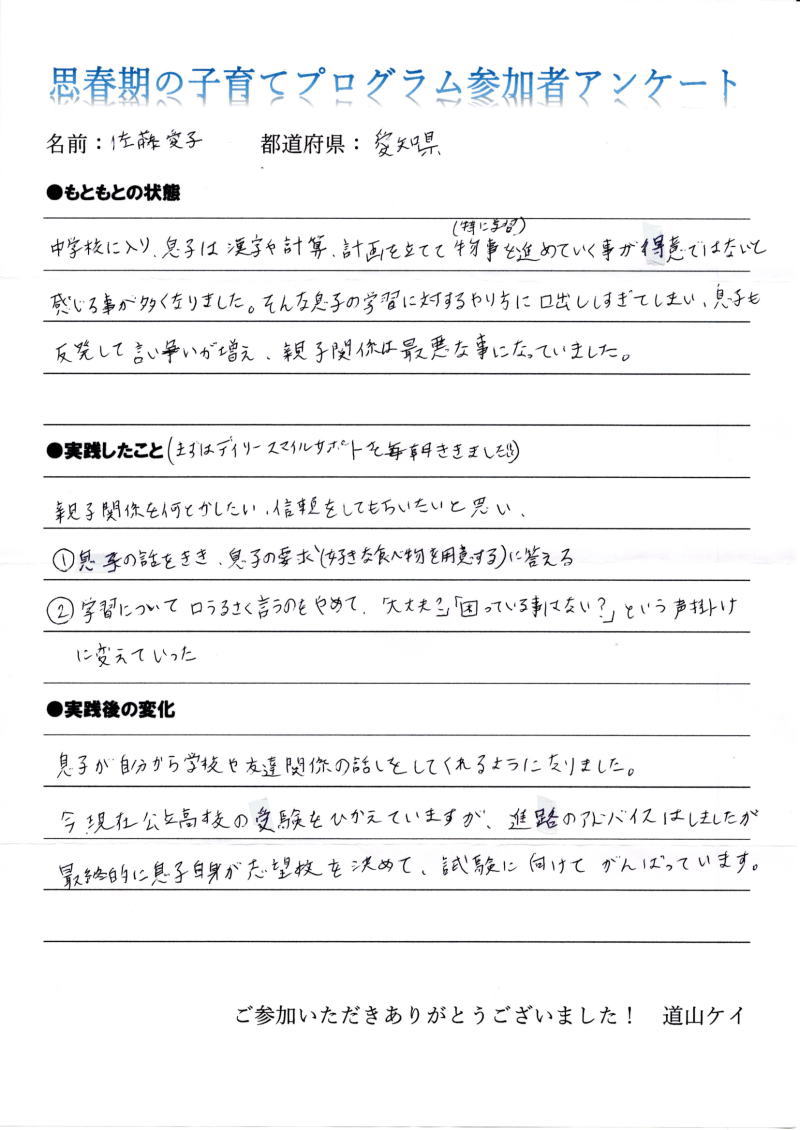 思春期の子育てプログラム参加者アンケート
名前：佐藤愛子　都道府県：愛知県
●もともとの状態
(特に学習)
中学校に入り、息子は漢字や計算、計画を立てて物事を進めていく事が得意ではないと
感じる事が多くなりました。そんな息子の学習に対するやり方に口出ししすぎてしまい、息子も
反発して言い争いが増え、親子関係は最悪な事になっていました。
●実践したこと(まずはデイリースマイルサポートを毎朝ききました!!)
親子関係を何とかしたい、信頼をしてもらいたいと思い、
①息子の話をきき、息子の要求(好きな食べ物を用意する)に答える
②学習について口うるさく言うのをやめて、「大丈夫?」「困っている事はない?」という声掛け
に変えていった
●実践後の変化
息子が自分から学校や友達関係の話しをしてくれるようになりました。
今現在公立高校の受験をひかえていますが、進路のアドバイスはしましたが
最終的に息子自身が志望校を決めて、試験に向けてがんばっています。
ご参加いただきありがとうございました！　道山ケイ